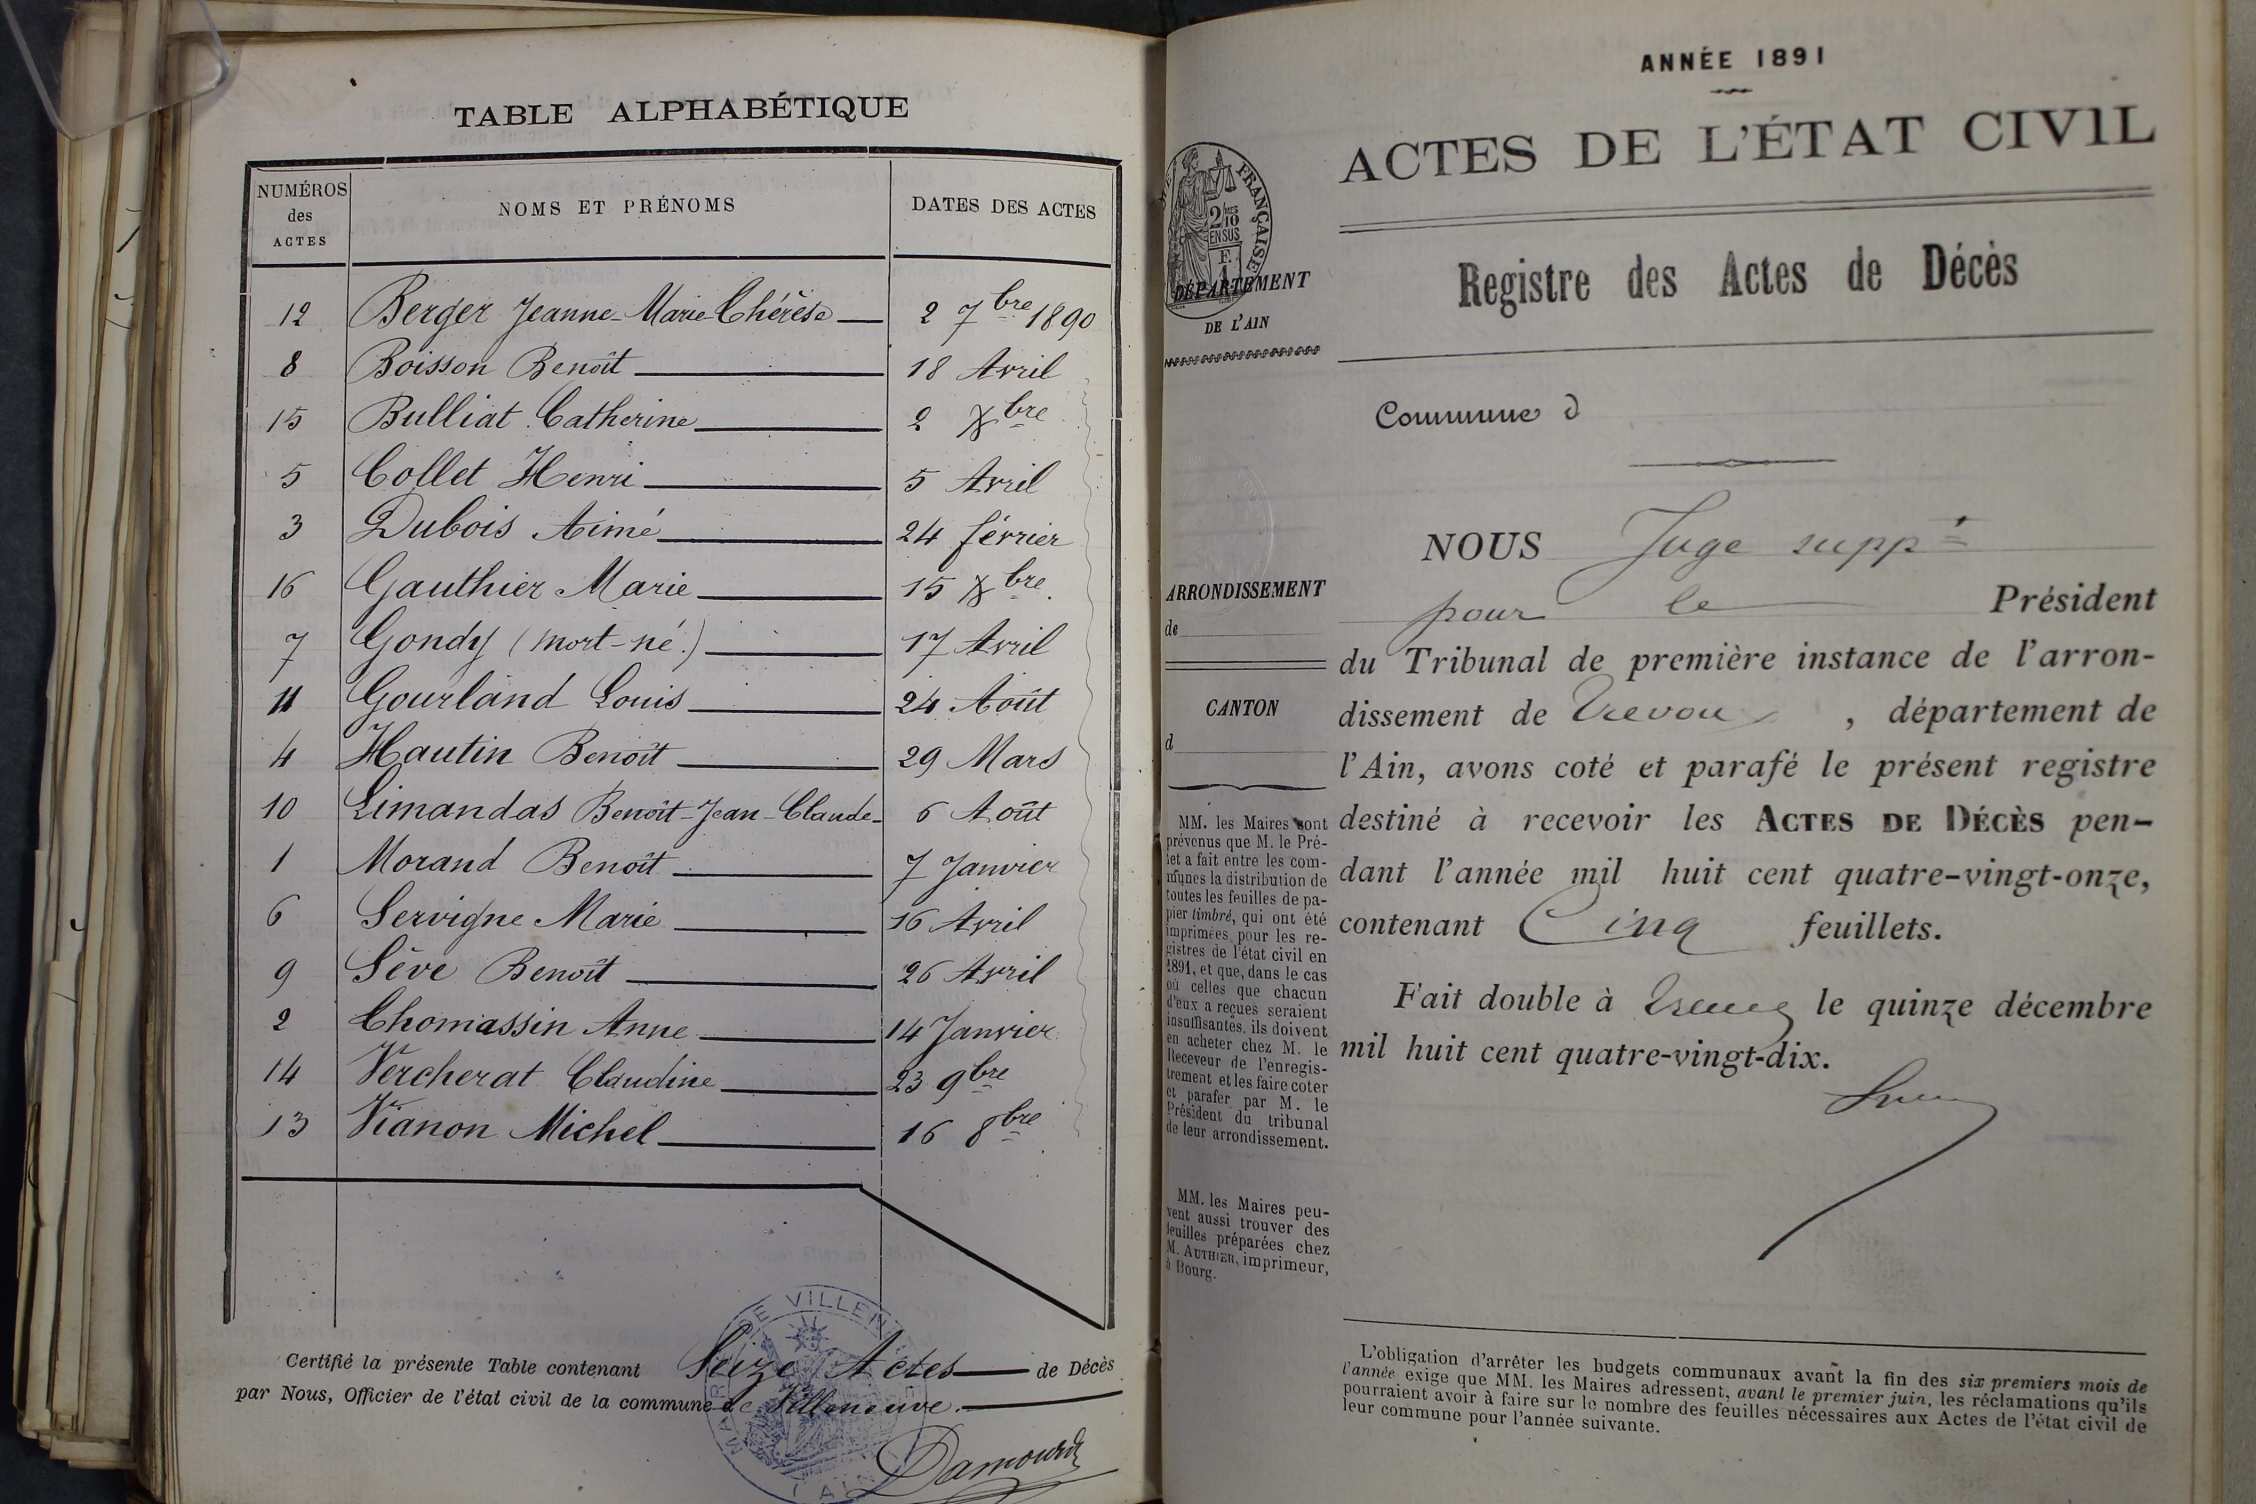 TABLE ALPHABÉTIQUE
NUMÉROS des ACTES
NOMS ET PRÉNOMS
DATES DES ACTES
12 Berger Jeanne-Marie-Thérèse 2 7bre 1890
8 Boisson Benoît 18 Avril
15 Bulliat Catherine 2 Xbre
5 Collet Henri 5 Avril
3 Dubois Aimé 24 février
16 Gauthier Marie 15 Xbre.
7 Gondy (mort-né.) 17 Avril
11 Gourland Louis 24 Août
4 Hautin Benoît 29 Mars
10 Limandas Benoît-Jean-Claude 6 Août
1 Morand Benoît 7 Janvier
6 Servigne Marie 16 Avril
9 Sève Benoît 26 Avril
2 Thomassin Anne 14 Janvier
14 Vercherat Claudine 23 9bre
13 Vianon Michel 16 8bre
Certifié la présente Table contenant Seize Actes de Décès
par Nous, Officier de l'état civil de la commune de Villeneuve.
ANNÉE 1891
ACTES DE L'ÉTAT CIVIL
Registre des Actes de Décès
FRANÇAISE
2/10 EN SUS
DÉPARTEMENT
DE L'AIN
Commune d
ARRONDISSEMENT
de
CANTON
d
MM. les Maires sont
prévenus que M. le Pré-
fet a fait entre les com-
munes la distribution de
toutes les feuilles de pa-
pier timbré, qui ont été
imprimées pour les re-
gistres de l'état civil en
1891, et que, dans le cas
où celles que chacun
d'eux a reçues seraient
insuffisantes, ils doivent
en acheter chez M. le
Receveur de l'enregis-
trement et les faire coter
et parafer par M. le
Président du tribunal
de leur arrondissement.
MM. les Maires peu-
vent aussi trouver des
feuilles préparées chez
M. AUTHIER, imprimeur,
à Bourg.
NOUS Juge suppt
pour le Président
du Tribunal de première instance de l'arron-
dissement de Trevoux, département de
l'Ain, avons coté et parafé le présent registre
destiné à recevoir les ACTES DE DÉCÈS pen-
dant l'année mil huit cent quatre-vingt-onze,
contenant Cinq feuillets.
Fait double à Trevoux le quinze décembre
mil huit cent quatre-vingt-dix.
L'obligation d'arrêter les budgets communaux avant la fin des six premiers mois de
l'année exige que MM. les Maires adressent, avant le premier juin, les réclamations qu'ils
pourraient avoir à faire sur le nombre des feuilles nécessaires aux Actes de l'état civil de
leur commune pour l'année suivante.